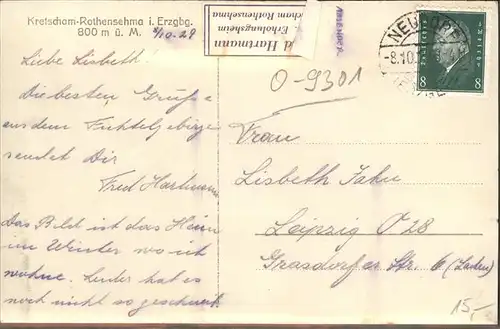 Kretscham-Rothensehma i. Erzgbg.
800 m ü. M.
8/10.28
Liebe Lisbeth!
Die besten Grüße
aus dem Fichtelgebirge
sendet Dir
Fred Hartmann
Das Bild ist das Heim
im Winter wo ich
wohne. Leider hat es
noch nicht so geschneit
d. Hartmann
Erholungsheim
cham Rothensehma
O-9301
NEU
-8.10.
8 8
Frau
Lisbeth Jahn
Leipzig O 28
Grasdorfer Str. 6 (Laden)
15,-